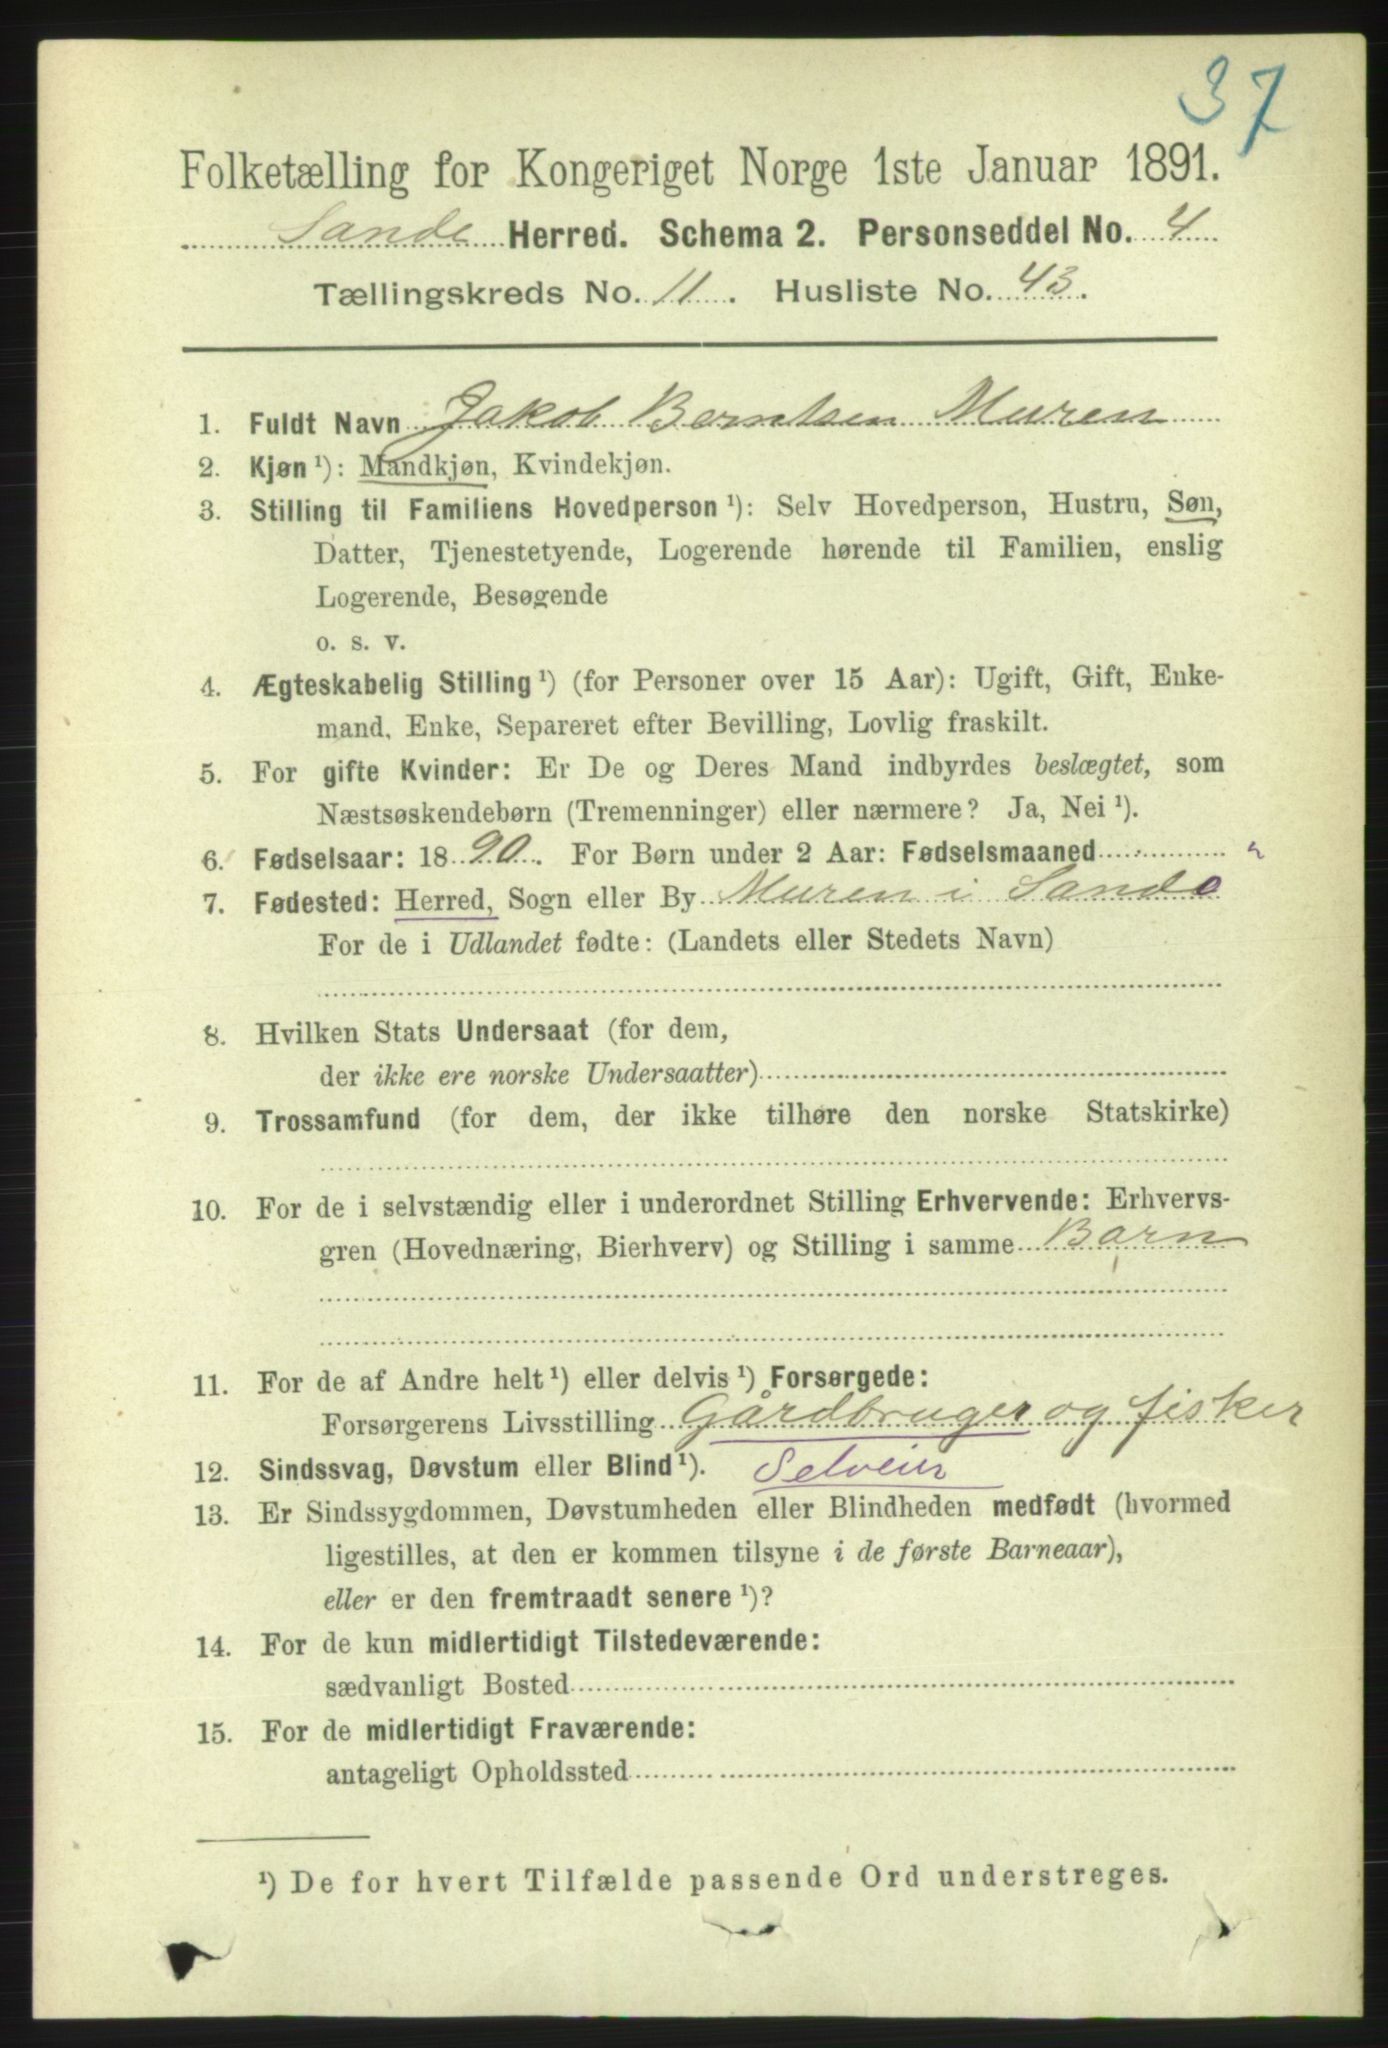 37
Folketælling for Kongeriget Norge 1ste Januar 1891.
Sande Herred. Schema 2. Personseddel No. 4
Tællingskreds No. 11. Husliste No. 43.
1. Fuldt Navn Jakob Berntsen Muren
2. Kjøn ¹): Mandkjøn, Kvindekjøn.
3. Stilling til Familiens Hovedperson ¹): Selv Hovedperson, Hustru, Søn,
Datter, Tjenestetyende, Logerende hørende til Familien, enslig
Logerende, Besøgende
o. s. v.
4. Ægteskabelig Stilling ¹) (for Personer over 15 Aar): Ugift, Gift, Enke-
mand, Enke, Separeret efter Bevilling, Lovlig fraskilt.
5. For gifte Kvinder: Er De og Deres Mand indbyrdes beslægtet, som
Næstsøskendebørn (Tremenninger) eller nærmere? Ja, Nei ¹).
6. Fødselsaar: 1890. For Børn under 2 Aar: Fødselsmaaned
7. Fødested: Herred, Sogn eller By Muren i Sande
For de i Udlandet fødte: (Landets eller Stedets Navn)
8. Hvilken Stats Undersaat (for dem,
der ikke ere norske Undersaatter)
9. Trossamfund (for dem, der ikke tilhøre den norske Statskirke)
10. For de i selvstændig eller i underordnet Stilling Erhvervende: Erhvervs-
gren (Hovednæring, Bierhverv) og Stilling i samme Barn
11. For de af Andre helt ¹) eller delvis ¹) Forsørgede:
Forsørgerens Livsstilling Gårdbruger og fisker
12. Sindssvag, Døvstum eller Blind ¹). Selveier
13. Er Sindssygdommen, Døvstumheden eller Blindheden medfødt (hvormed
ligestilles, at den er kommen tilsyne i de første Barneaar),
eller er den fremtraadt senere ¹)?
14. For de kun midlertidigt Tilstedeværende:
sædvanligt Bosted
15. For de midlertidigt Fraværende:
antageligt Opholdssted
¹) De for hvert Tilfælde passende Ord understreges.